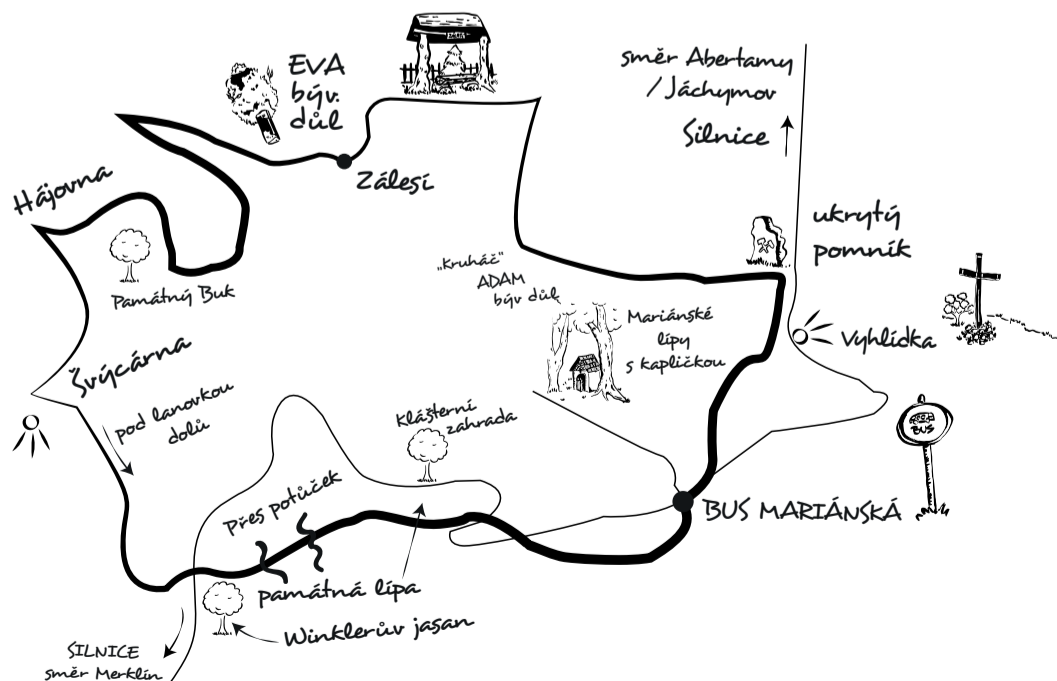 EVA
býv.
důl
směr Abertamy
/Jáchymov
Silnice
Hájovna
Zálesí
ukrytý
pomník
„Kruháč“
ADAM
býv důl
Památný Buk
Mariánské
lípy
s kapličkou
Vyhlídka
Švýcárna
pod lanovkou
dolů
Klášterní
zahrada
BUS
přes potůček
BUS MARIÁNSKÁ
památná lípa
Winklerův jasan
SILNICE
směr Merklín